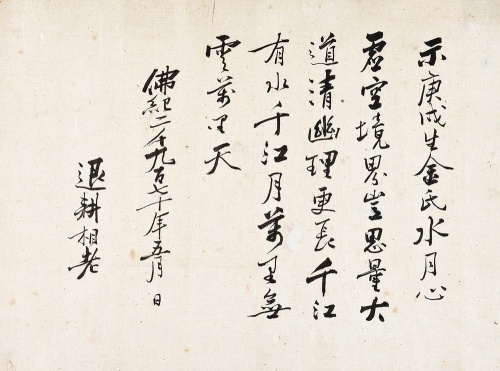 示庚戌生金氏水月心
虛空境界豈思量大
道清幽理更長千江
有水千江月萬里無
雲萬里天
佛紀二千九百七十年五月 日
退耕相老